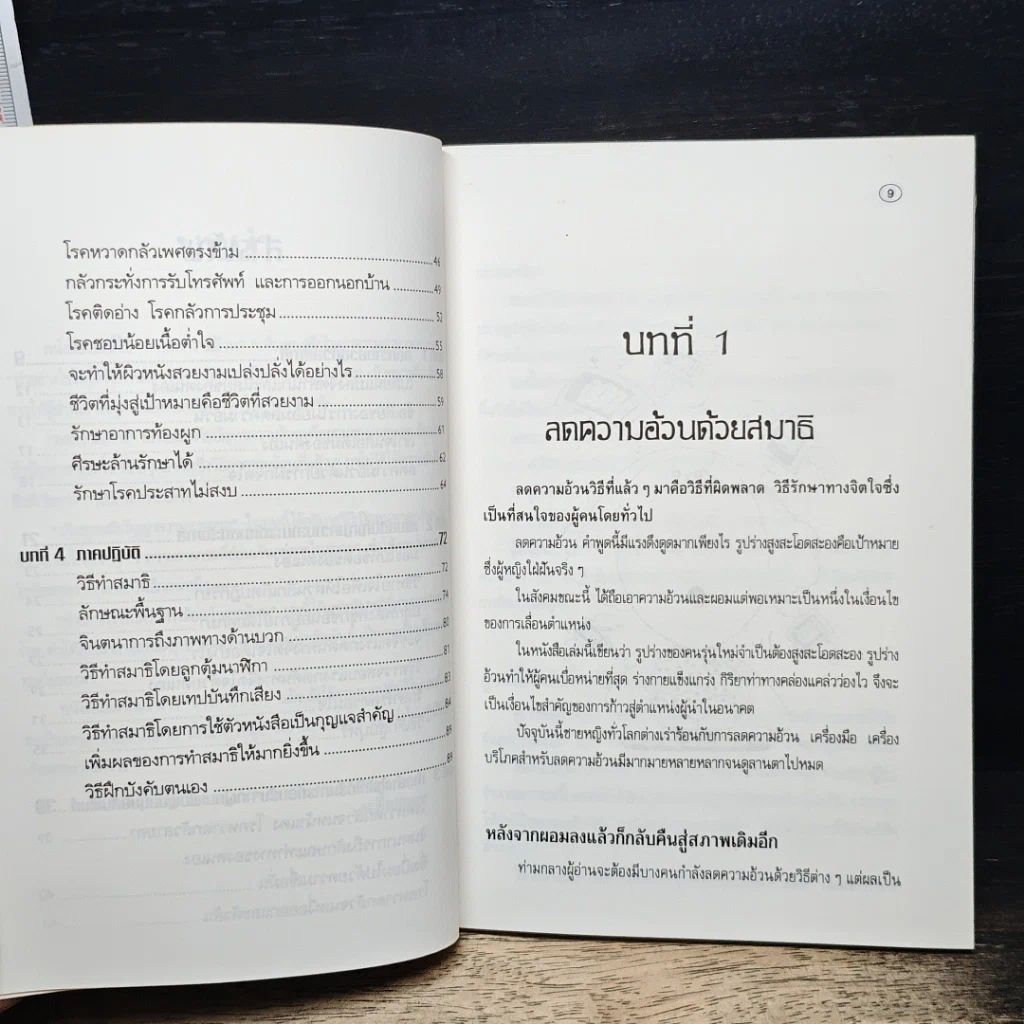 โรคหวาดกลัวเพศตรงข้าม ..... 46
กลัวกระทั่งการรับโทรศัพท์ และการออกนอกบ้าน ..... 49
โรคติดอ่าง โรคกลัวการประชุม ..... 52
โรคชอบน้อยเนื้อต่ำใจ ..... 55
จะทำให้ผิวหนังสวยงามเปล่งปลั่งได้อย่างไร ..... 58
ชีวิตที่มุ่งสู่เป้าหมายคือชีวิตที่สวยงาม ..... 59
รักษาอาการท้องผูก ..... 61
ศีรษะล้านรักษาได้ ..... 62
รักษาโรคประสาทไม่สงบ ..... 64
บทที่ 4 ภาคปฏิบัติ ..... 72
วิธีทำสมาธิ ..... 72
ลักษณะพื้นฐาน ..... 74
จินตนาการถึงภาพทางด้านบวก ..... 80
วิธีทำสมาธิโดยลูกตุ้มนาฬิกา ..... 81
วิธีทำสมาธิโดยเทปบันทึกเสียง ..... 83
วิธีทำสมาธิโดยการใช้ตัวหนังสือเป็นกุญแจสำคัญ ..... 84
เพิ่มผลของการทำสมาธิให้มากยิ่งขึ้น .....
วิธีฝึกบังคับตนเอง .....
9
บทที่ 1
ลดความอ้วนด้วยสมาธิ
ลดความอ้วนวิธีที่แล้ว ๆ มาคือวิธีที่ผิดพลาด วิธีรักษาทางจิตใจซึ่ง
เป็นที่สนใจของผู้คนโดยทั่วไป
ลดความอ้วน คำพูดนี้มีแรงดึงดูดมากเพียงไร รูปร่างสูงสะโอดสะองคือเป้าหมาย
ซึ่งผู้หญิงใฝ่ฝันจริง ๆ
ในสังคมขณะนี้ ได้ถือเอาความอ้วนและผอมแต่พอเหมาะเป็นหนึ่งในเงื่อนไข
ของการเลื่อนตำแหน่ง
ในหนังสือเล่มนี้เขียนว่า รูปร่างของคนรุ่นใหม่จำเป็นต้องสูงสะโอดสะอง รูปร่าง
อ้วนทำให้ผู้คนเบื่อหน่ายที่สุด ร่างกายแข็งแกร่ง กิริยาท่าทางคล่องแคล่วว่องไว จึงจะ
เป็นเงื่อนไขสำคัญของการก้าวสู่ตำแหน่งผู้นำในอนาคต
ปัจจุบันนี้ชายหญิงทั่วโลกต่างเร่าร้อนกับการลดความอ้วน เครื่องมือ เครื่อง
บริโภคสำหรับลดความอ้วนมีมากมายหลายหลากจนดูลานตาไปหมด
หลังจากผอมลงแล้วก็กลับคืนสู่สภาพเดิมอีก
ท่ามกลางผู้อ่านจะต้องมีบางคนกำลังลดความอ้วนด้วยวิธีต่าง ๆ แต่ผลเป็น